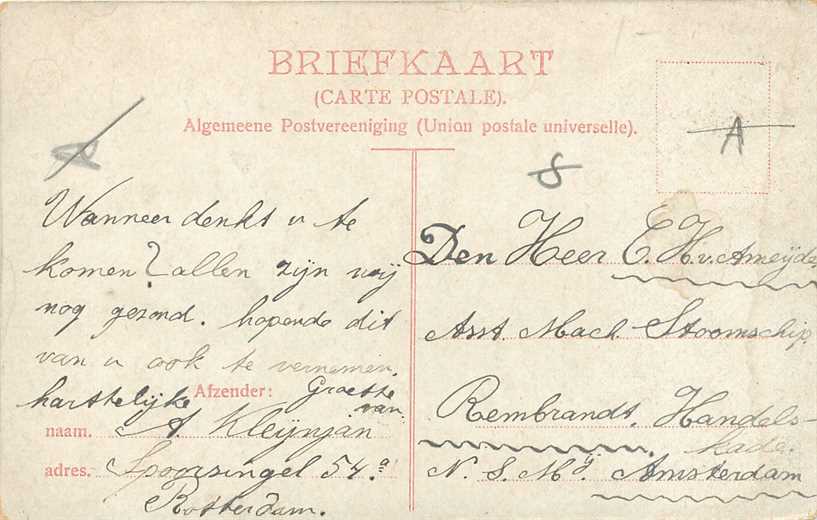 BRIEFKAART
(CARTE POSTALE).
Algemeene Postvereeniging (Union postale universelle).
A
8
Wanneer denkt u te
komen? allen zijn wij
nog gezond. hopende dit
van u ook te vernemen.
harttelijke Groette
van
Afzender:
naam. A Kleijnjan
adres. Spoorsingel 54.a
Rotterdam.
Den Heer E. H. v. Ameijde
Asst. Mach. Stoomschip
Rembrandt. Handels-
kade.
N. S. My. Amsterdam